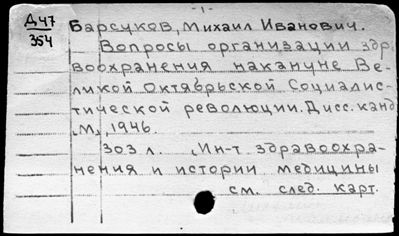 - 1 -
Д47
354
Барсуков, Михаил Иванович.
Вопросы организации здр.
воохранения накануне Ве-
ликой Октябрьской Социалис-
тической революции. Дисс. канд
М., 1946.
303 л. (Ин-т здравоохра-
нения и истории медицины
см. след. карт.